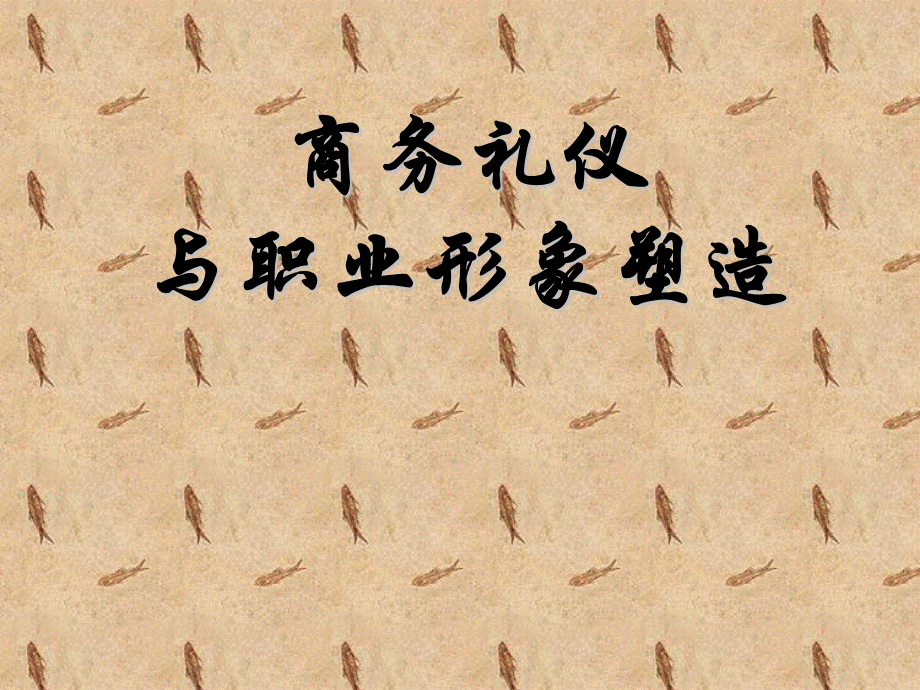 商务礼仪
与职业形象塑造